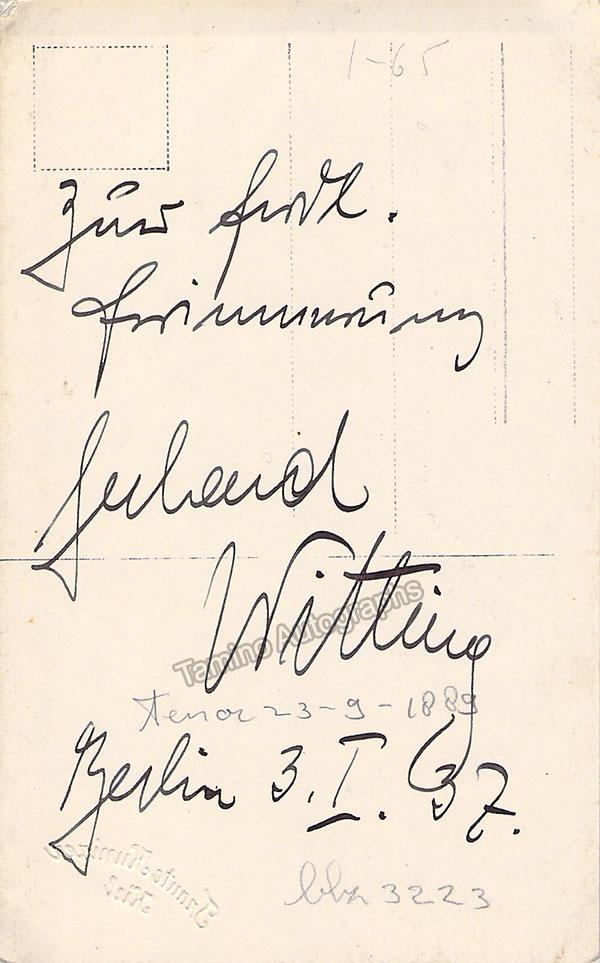 1-65
Zur frdl.
Erinnerung
Gerhard
Witting
Tamino Autographs
Tenor 23-9-1889
Berlin 3.I.37.
3223